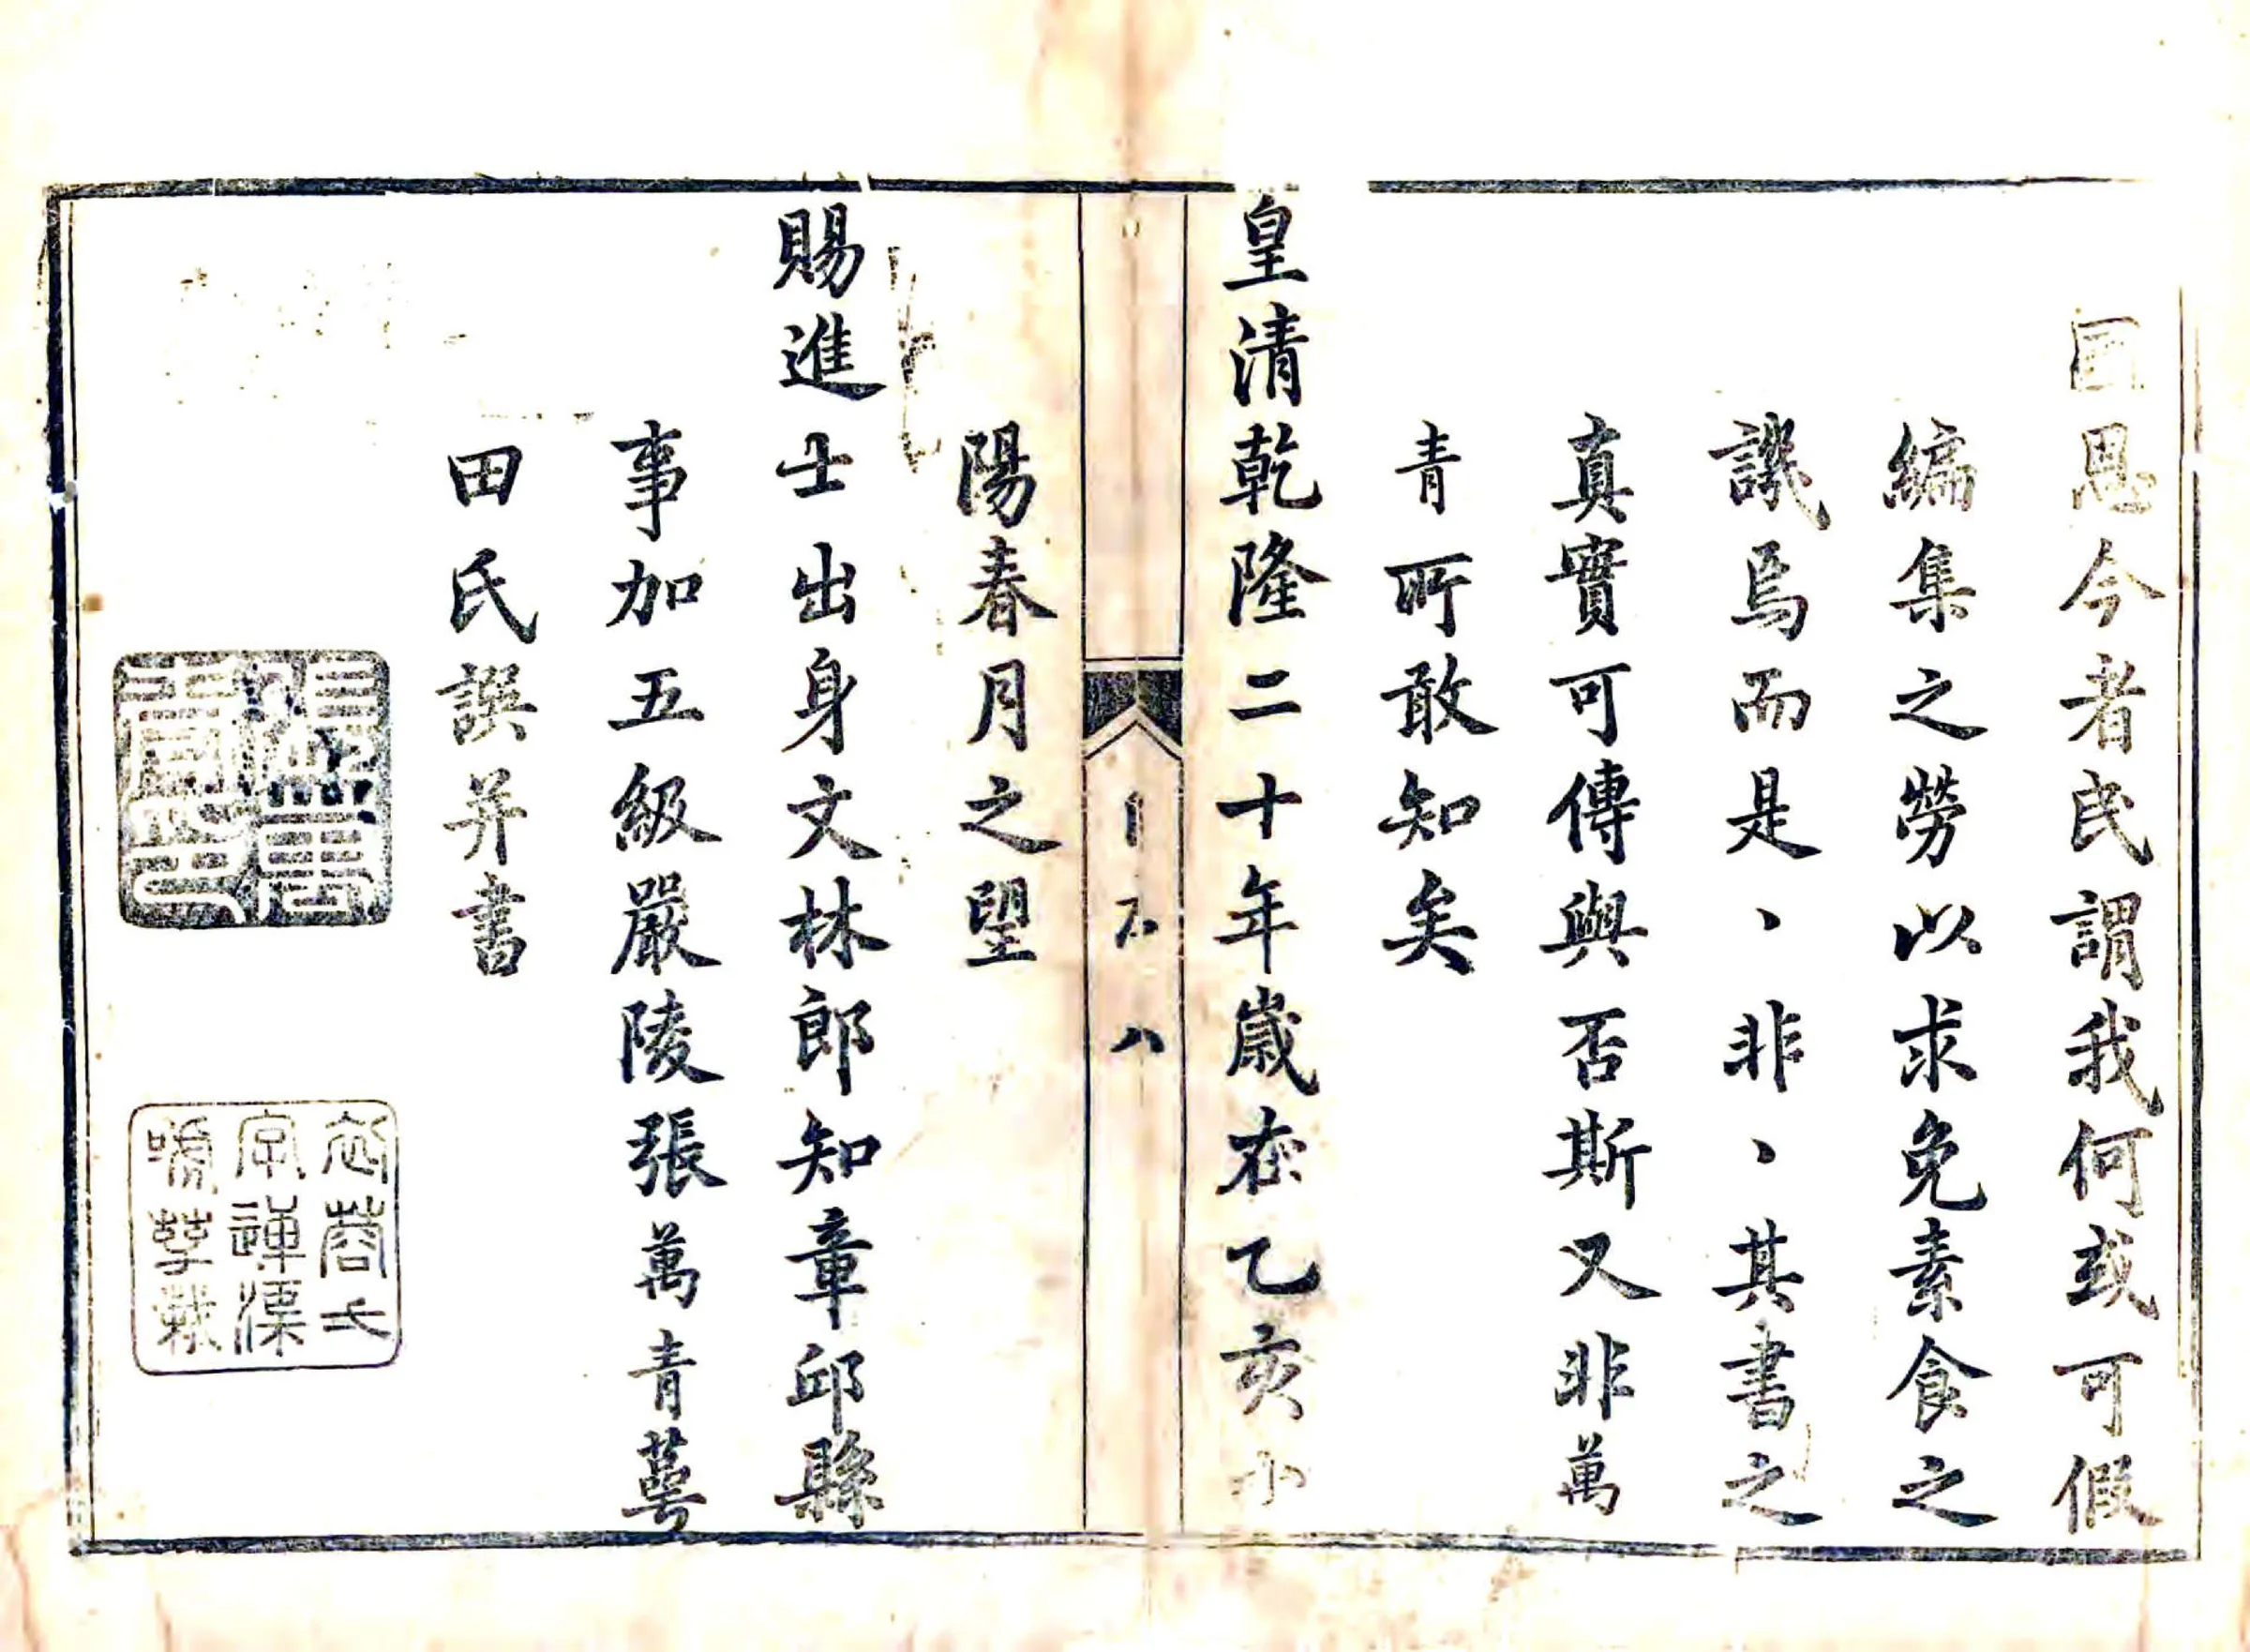 國恩今者民謂我何或可假
編集之勞以求免素食之
譏焉而是、非、其書之
真實可傳與否斯又非萬
青所敢知矣
皇清乾隆二十年歲在乙亥小
陽春月之望
賜進士出身文林郎知章邱縣
事加五級嚴陵張萬青蕚
田氏譔并書
張萬青印
八